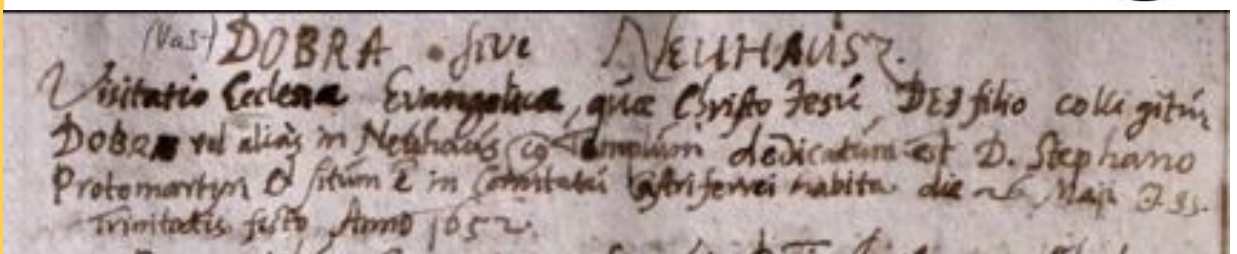 (Vas-) DOBRA • sive NEUHAUSZ.
Visitatio Ecclesiæ Evangelicæ, quæ Christo Jesú, DEI filio colligitúr
DOBRÆ vel aliàs in Neúhaús, Templúm dedicatúm est D. Stephano
Protomartyri & sitúm ē in Comitatú Castriferrei habita die 26 Maji
Trinitatis festo, Anno 1652.